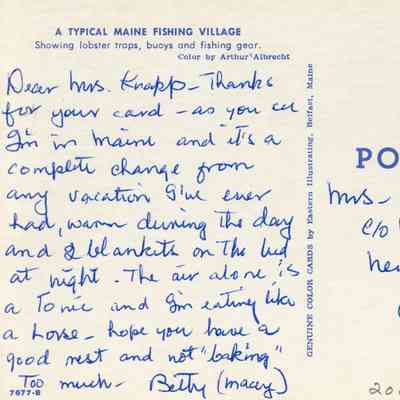 A TYPICAL MAINE FISHING VILLAGE
Showing lobster traps, buoys and fishing gear.
Color by Arthur Albrecht
Dear Mrs. Knapp - Thanks
for your card - as you can
I'm in Maine and it's a
complete change from
any vacation I've ever
had, warm during the day
and 2 blankets on the bed
at night. The air alone is
a Tonic and I'm eating like
a horse - hope you have a
good rest and not "baking"
Too much - Betty (Macey)
7677-B
GENUINE COLOR CARDS by Eastern Illustrating, Belfast, Maine
PO
Mrs-
c/o
20